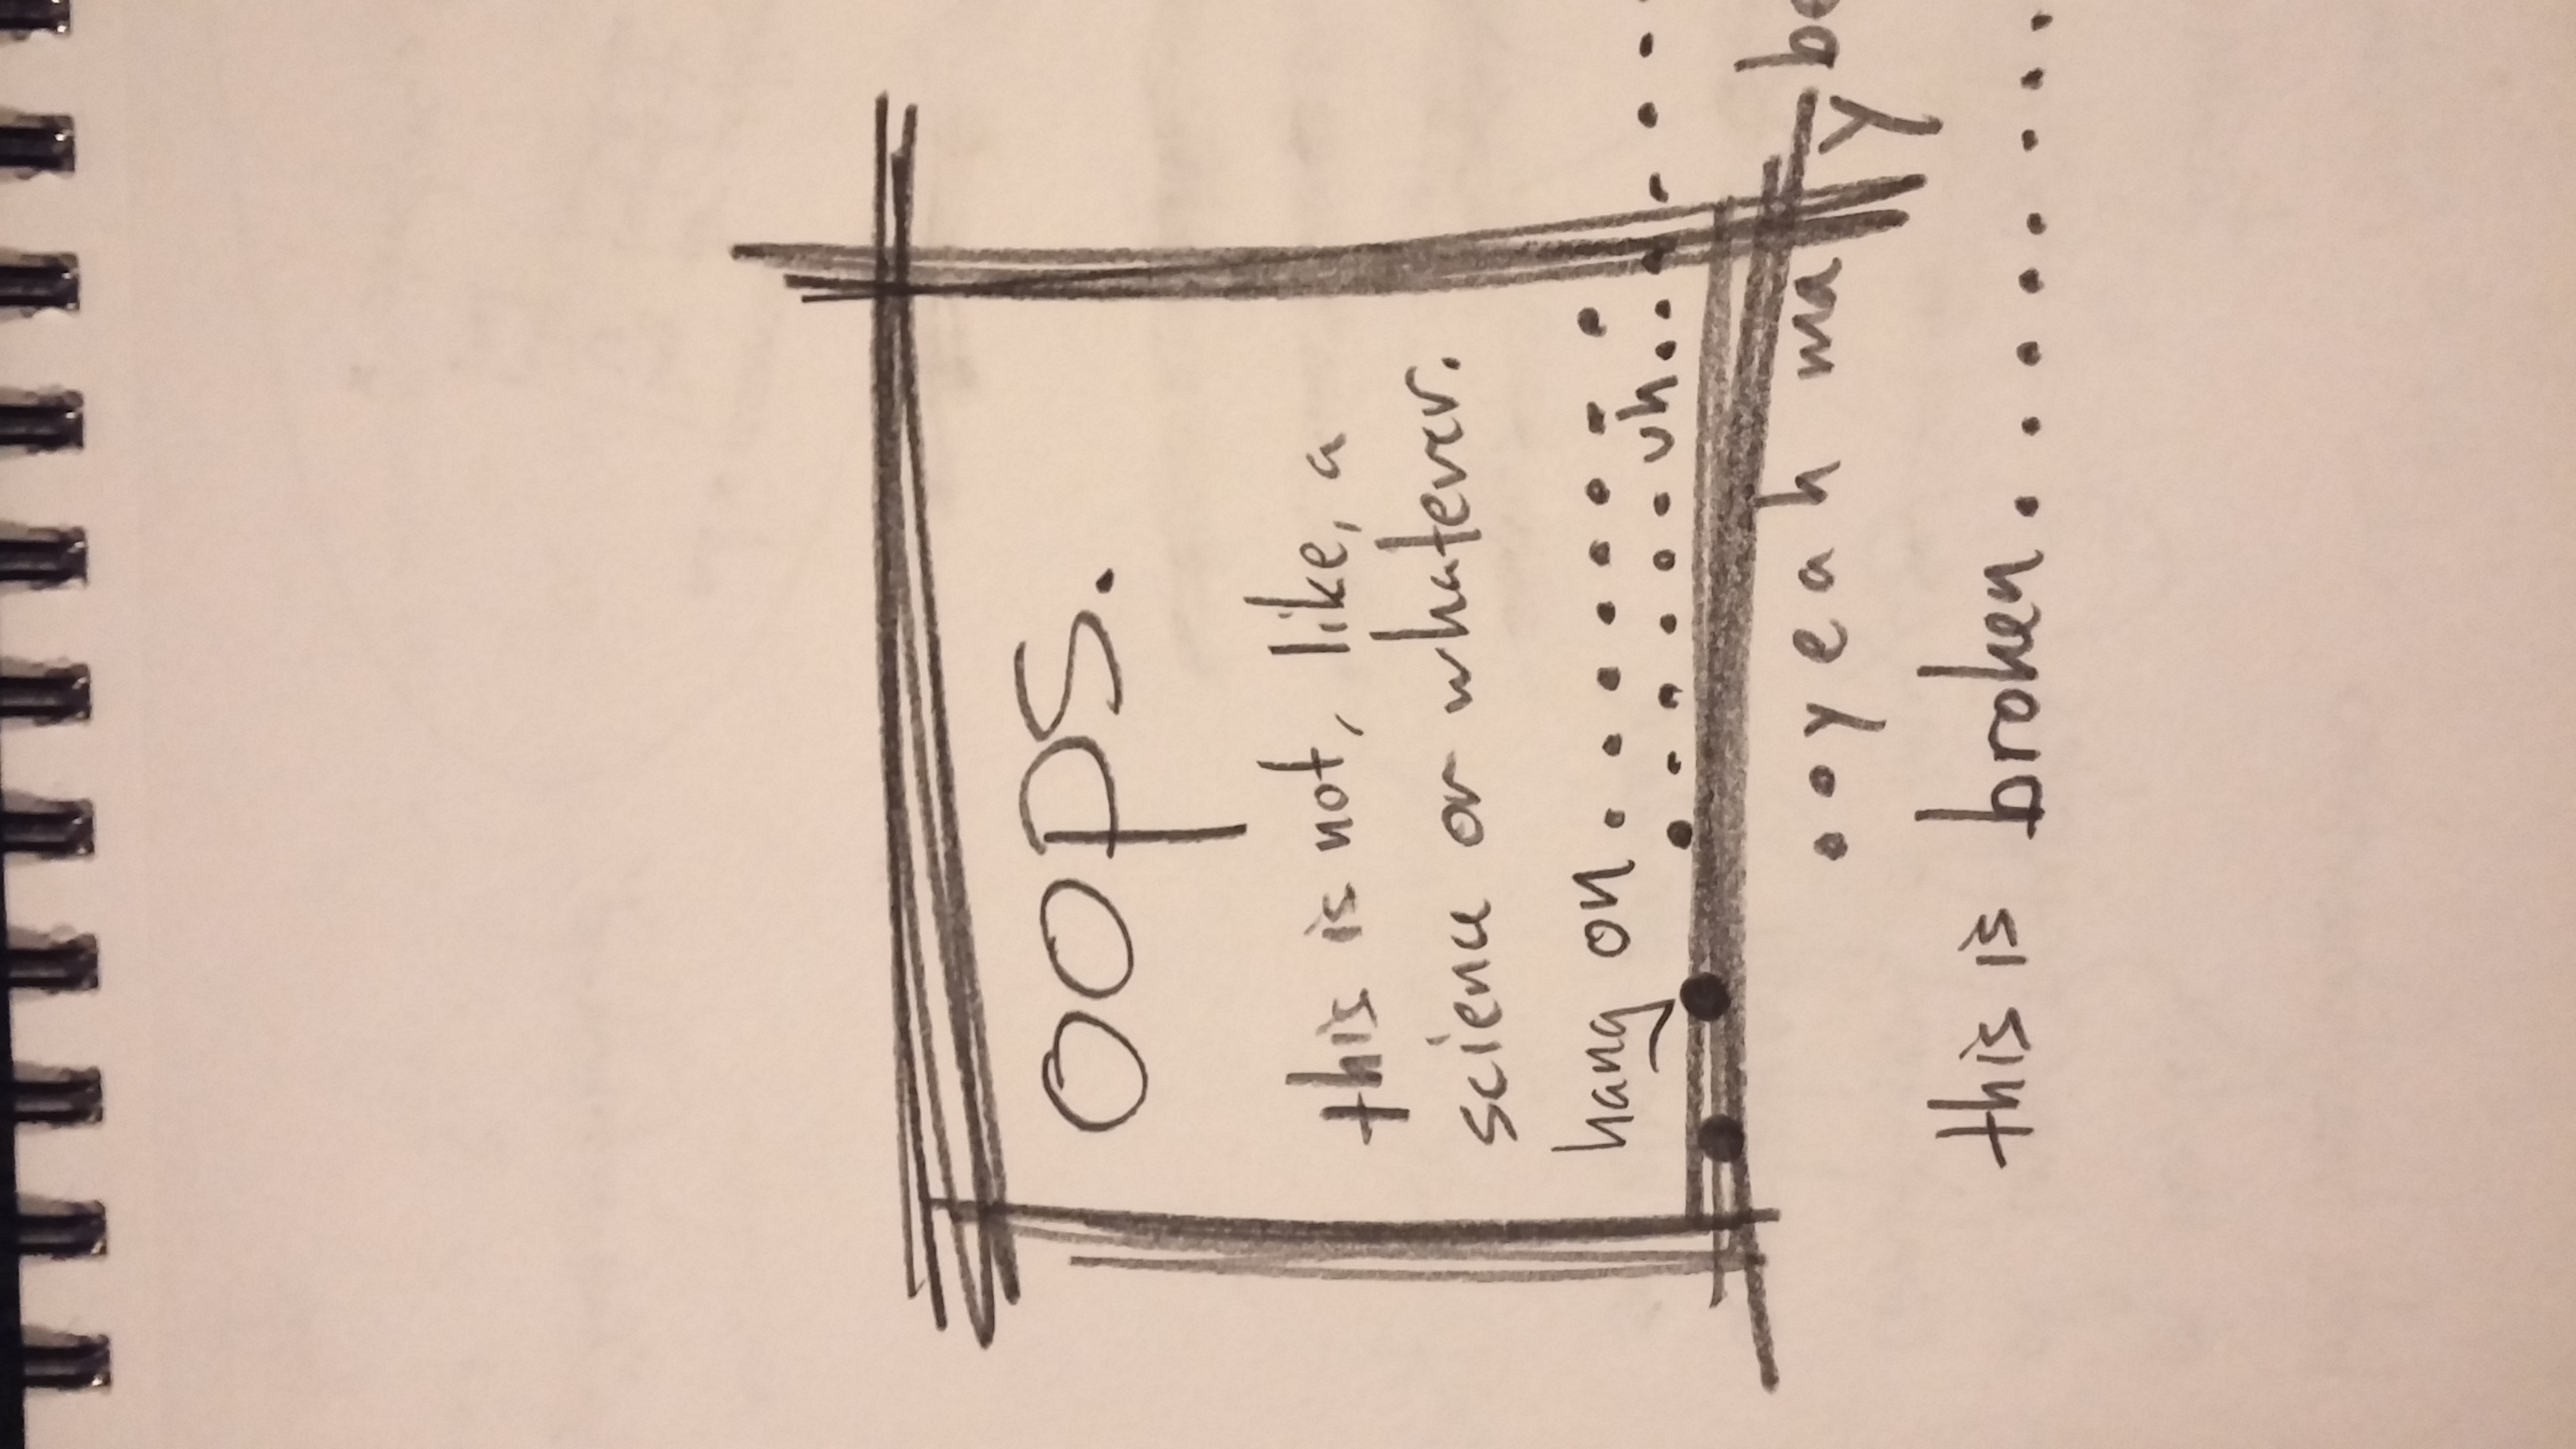 oops.
this is not, like, a
science or whatever.
hang on........
......uh......
..yeah maybe
this is broken........